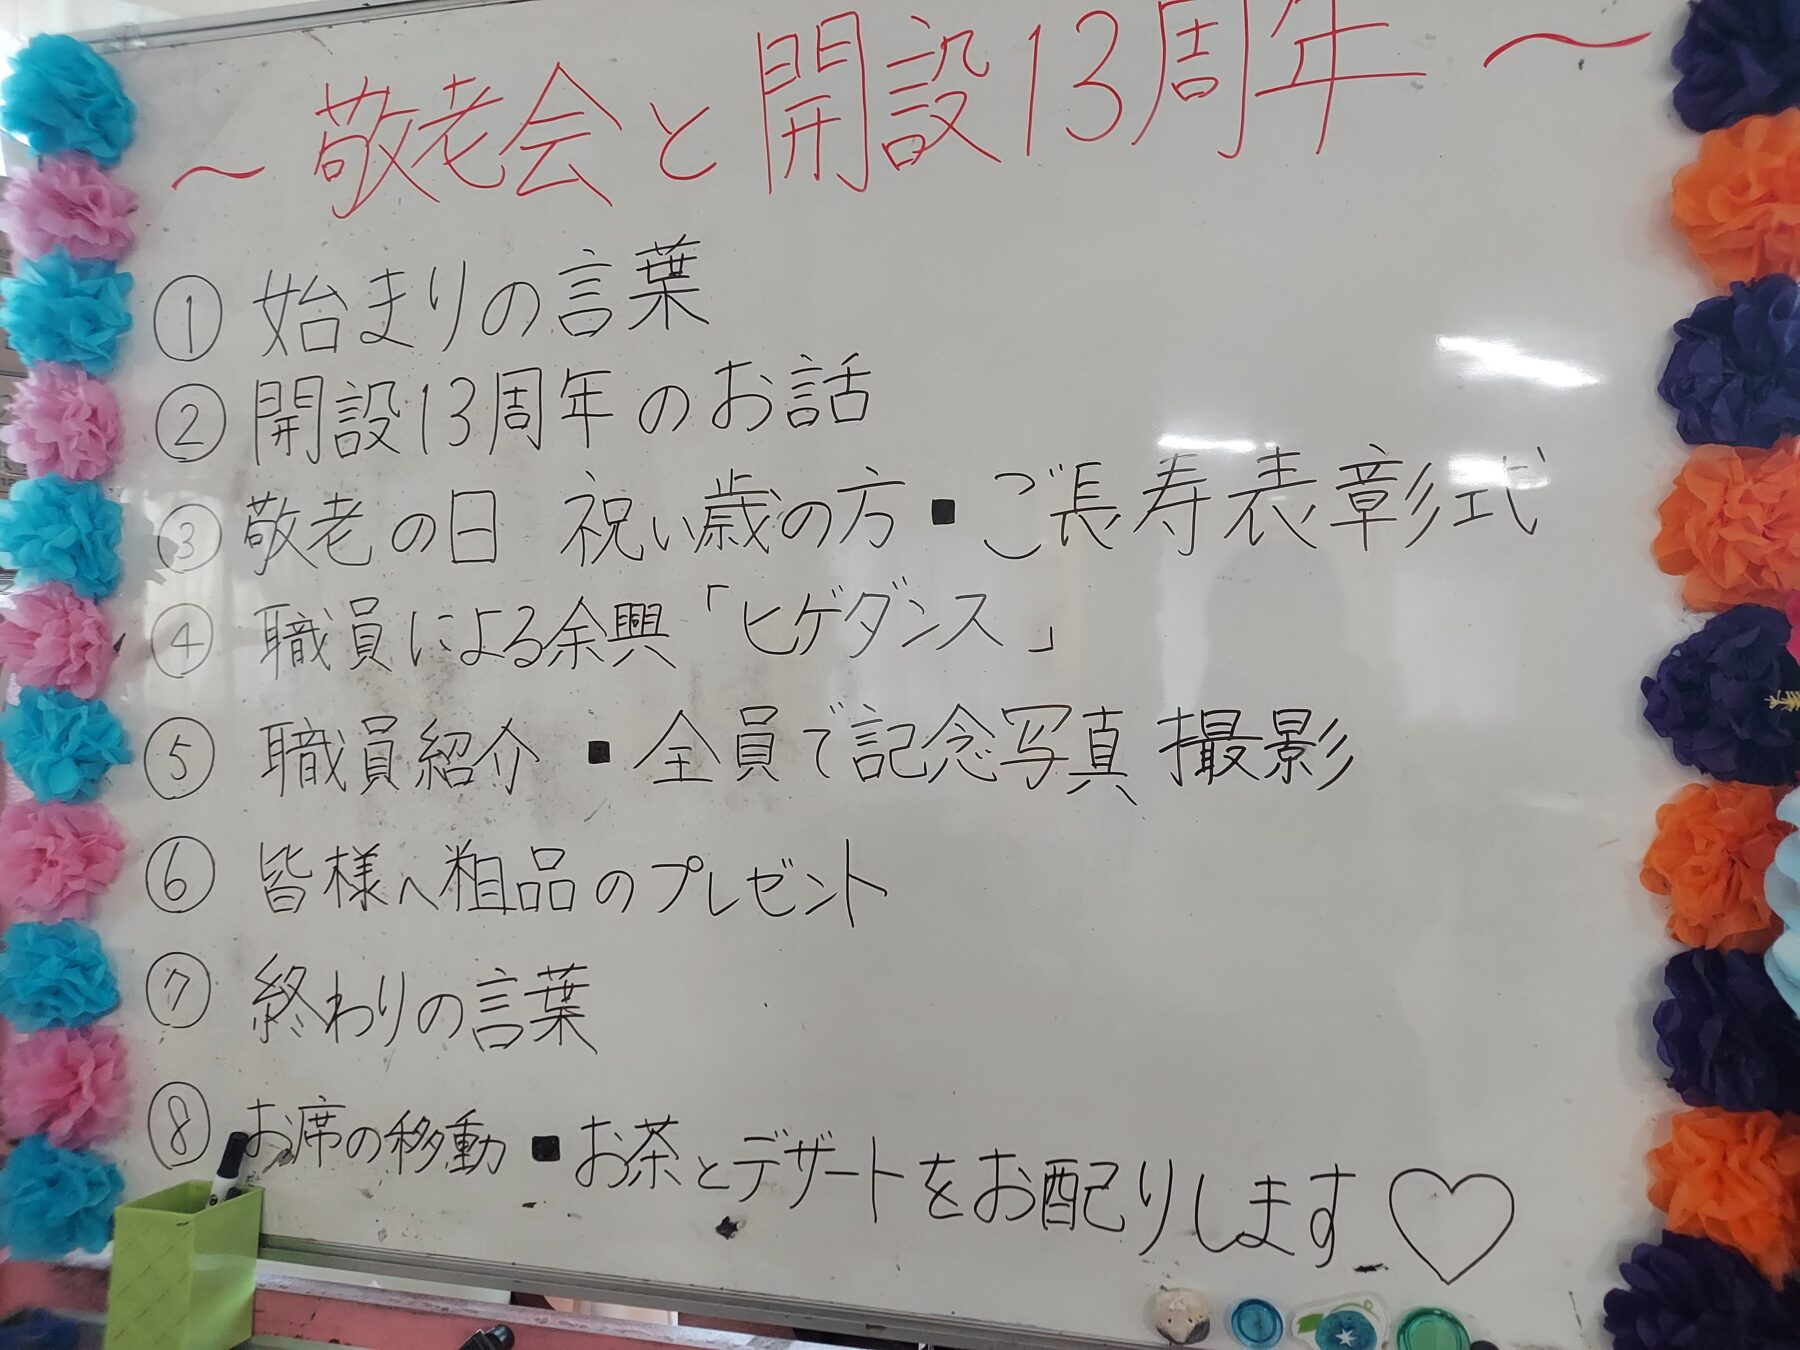 ～敬老会と開設13周年～
① 始まりの言葉
② 開設13周年のお話
③ 敬老の日 祝い歳の方▪ご長寿表彰式
④ 職員による余興「ヒゲダンス」
⑤ 職員紹介▪全員で記念写真撮影
⑥ 皆様へ粗品のプレゼント
⑦ 終わりの言葉
⑧ お席の移動▪お茶とデザートをお配りします♡